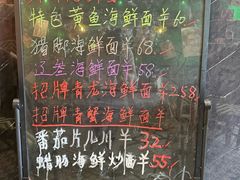 特色黄鱼海鲜面羊60.
猪脚海鲜面羊68.
辽参海鲜面羊58.
招牌青龙海鲜面羊258
招牌青蟹海鲜面羊
番茄片儿川羊32
蛤肠海鲜炒面羊55